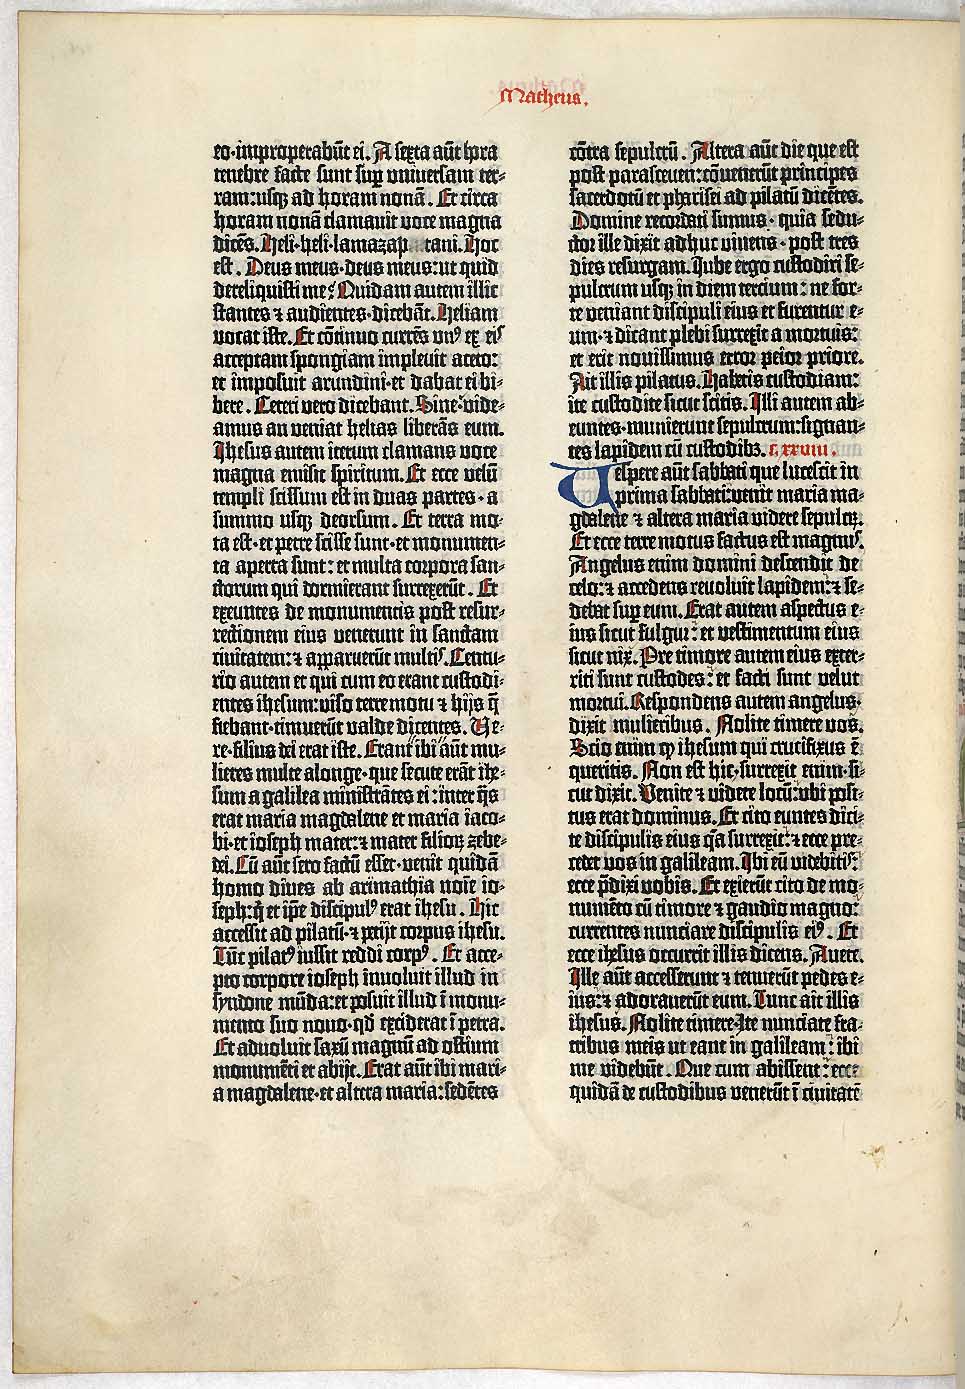 Matheus.
eo·improperabūt ei. A sexta aūt hora
tenebre facte sunt sup̱ universam ter-
ram:usqꝫ ad horam nonā. Et circa
horam nonā clamavit voce magna
dicēs. Heli·heli·lamazap tani. Hoc
est. Deus meus·deus meus:ut quid
dereliquisti me? Quidam autem illic
stantes ⁊ audientes·dicebāt. Heliam
vocat iste. Et cōtinuo currēs unꝰ ex eis
acceptam spongiam implevit aceto:
et imposuit arundini·et dabat ei bi-
bere. Ceteri vero dicebant. Sine·vide-
amus an veniat helias liberās eum.
Ihesus autem iterum clamans voce
magna emisit spiritum. Et ecce velū
templi scissum est in duas partes·a
summo usqꝫ deorsum. Et terra mo-
ta est·et petre scisse sunt·et monumen-
ta aperta sunt: et multa corpora san-
ctorum qui dormierant surrexerūt. Et
exeuntes de monumentis post resur-
rectionem eius venerunt in sanctam
civitatem:⁊ apparuerūt multis. Centu-
rio autem et qui cum eo erant custodi-
entes ihesum:viso terremotu ⁊ hijs q̄
fiebant·timuerūt valde dicentes. Ve-
re·filius dei erat iste. Erant ibi aūt mu-
lieres multe alonge·que secute erāt ihe-
sum a galilea ministrātes ei:inter q̄s
erat maria magdalene et maria iaco-
bi·et ioseph mater:⁊ mater filioꝝ zebe-
dei. Cū aūt sero factū esset·venit quidā
homo dives ab arimathia noīe io-
seph:q̄ et ip̄e discipulꝰ erat ihesu. Hic
accessit ad pilatū·⁊ petijt corpus ihesu.
Tūc pilatꝰ iussit reddi corpꝰ. Et acce-
pto corpore ioseph involuit illud in
syndone mūda:et posuit illud ī monu-
mento suo novo·qd̄ exciderat ī petra.
Et advoluit saxū magnū ad ostium
monumēti et abijt. Erat aūt ibi mari-
a magdalene·et altera maria:sedētes
cōtra sepulcrū. Altera aūt die que est
post parasceven:cōvenerūt principes
sacerdotū et pharisei ad pilatū dicētes.
Domine recordati sumus·quia sedu-
ctor ille dixit adhuc vivens·post tres
dies resurgam. Iube ergo custodiri se-
pulcrum usqꝫ in diem tercium: ne for-
te veniant discipuli eius et furentur e-
um·⁊ dicant plebi surrexit a mortuis:
et erit novissimus error peior priore.
Ait illis pilatus. Habetis custodiam:
ite custodite sicut scitis. Illi autem ab-
euntes·munierunt sepulcrum:signan-
tes lapidem cū custodibꝫ. c. xxviii.
Vespere aūt sabbati que lucescit in
prima sabbati:venit maria ma-
gdalene ⁊ altera maria videre sepulcꝝ.
Et ecce terre motus factus est magnus.
Angelus enim domini descendit de
celo:⁊ accedens revoluit lapidem:⁊ se-
debat sup̱ eum. Erat autem aspectus e-
ius sicut fulgur: et vestimentum eius
sicut nix. Pre timore autem eius exter-
riti sunt custodes: et facti sunt velut
mortui. Respondens autem angelus·
dixit mulieribus. Nolite timere vos.
Scio enim ꝙ ihesum qui crucifixus ē
queritis. Non est hic·surrexit enim·si-
cut dixit. Venite ⁊ videte locū:ubi posi-
tus erat dominus. Et cito euntes dici-
te discipulis eius q̄a surrexit:⁊ ecce pre-
cedet vos in galileam. Ibi eū videbitis:
ecce p̄dixi vobis. Et exierūt cito de mo-
numēto cū timore ⁊ gaudio magno:
currentes nunciare discipulis eiꝰ. Et
ecce ihesus occurrit illis dicens. Avete.
Ille aūt accesserunt ⁊ tenuerūt pedes e-
ius:⁊ adoraverūt eum. Tunc ait illis
ihesus. Nolite timere·Ite nunciate fra-
tribus meis ut eant in galileam: ibi
me videbūt. Que cum abissent: ecce
quidā de custodibus venerūt ī civitatē